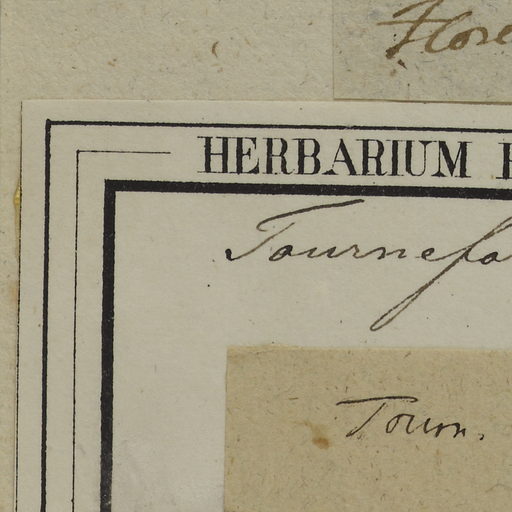 Flore
HERBARIUM
Tournefo
Tourn.